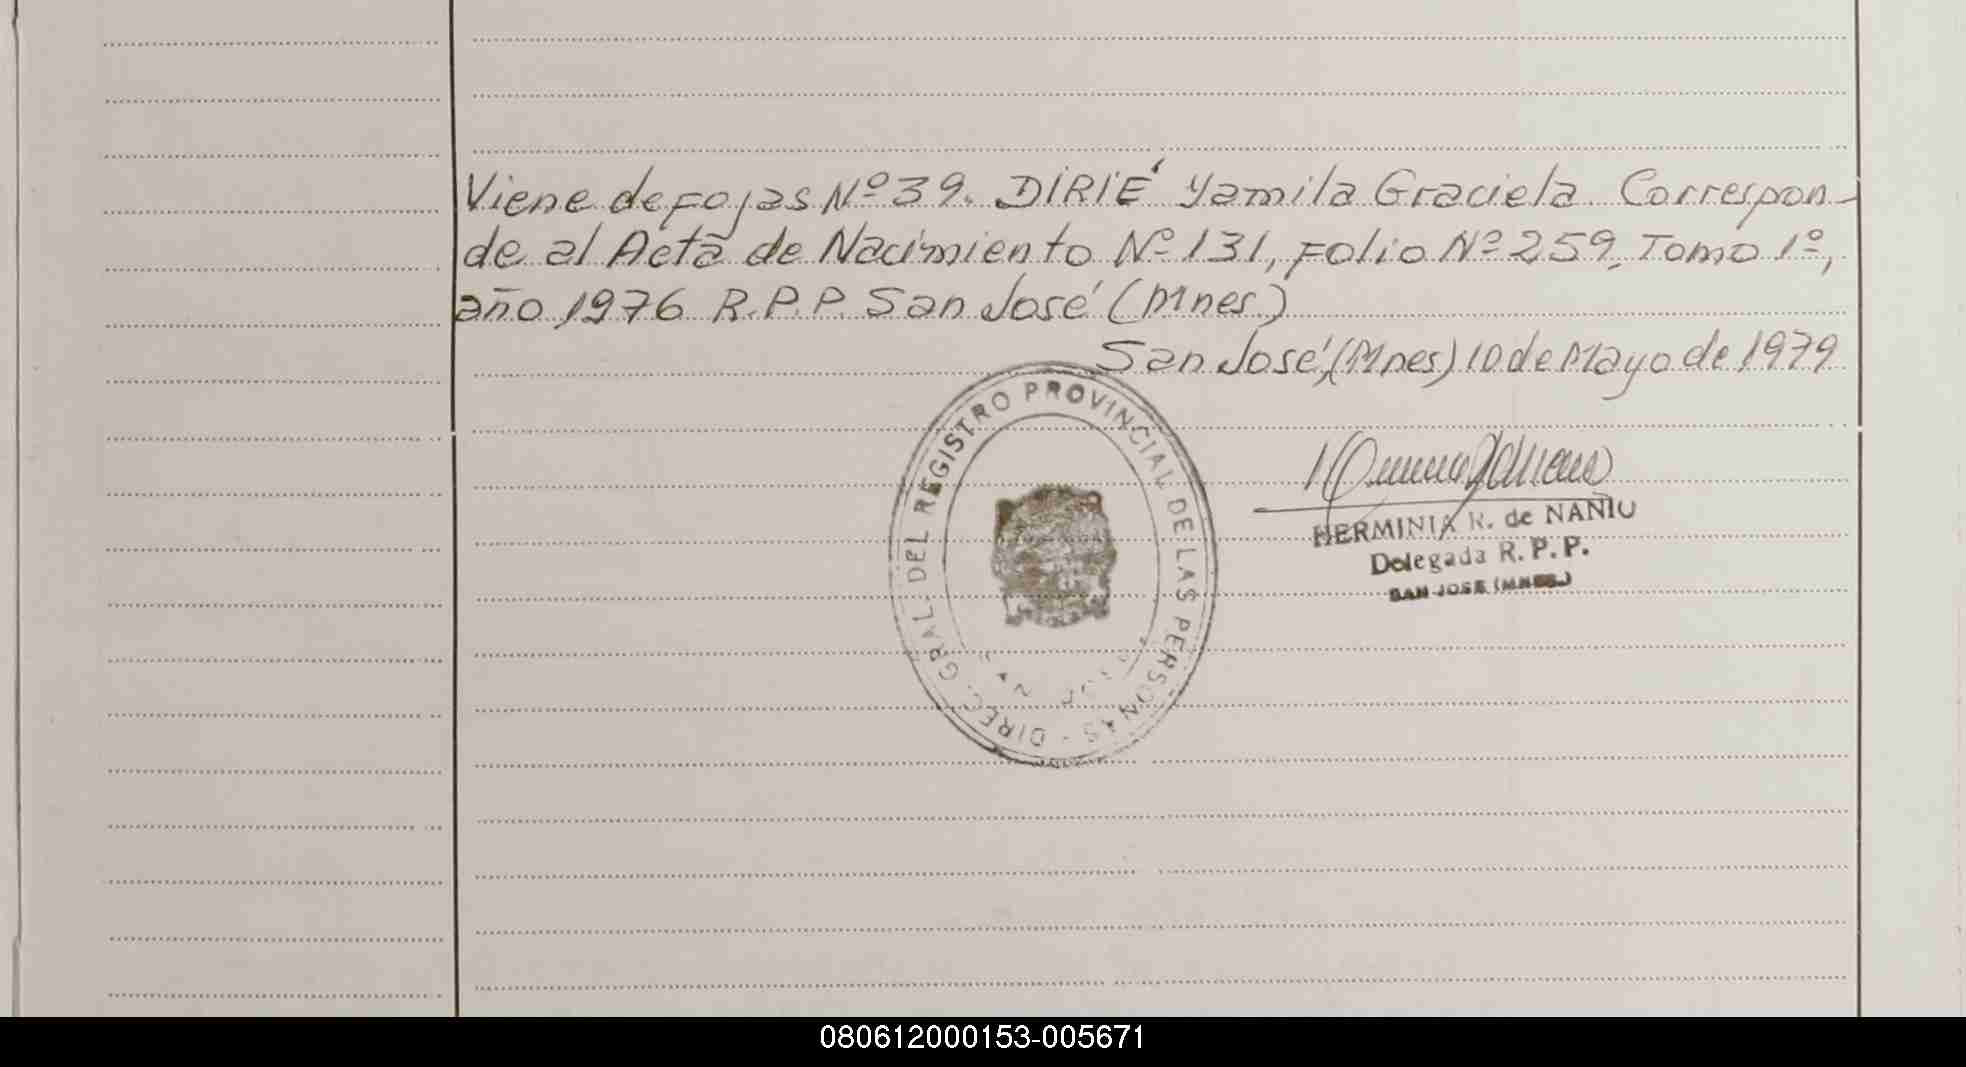 Viene de fojas Nº 39. DIRIÉ Yamila Graciela. Correspon-
de al Acta de Nacimiento Nº 131, Folio Nº 259, Tomo 1º,
año 1976 R.P.P. San José (Mnes.)
San José, (Mnes) 10 de Mayo de 1979
DIREC. GRAL. DEL REGISTRO PROVINCIAL DE LAS PERSONAS -
HERMINIA R. de NAÑIU
Delegada R. P. P.
SAN JOSE (MNES.)
080612000153-005671